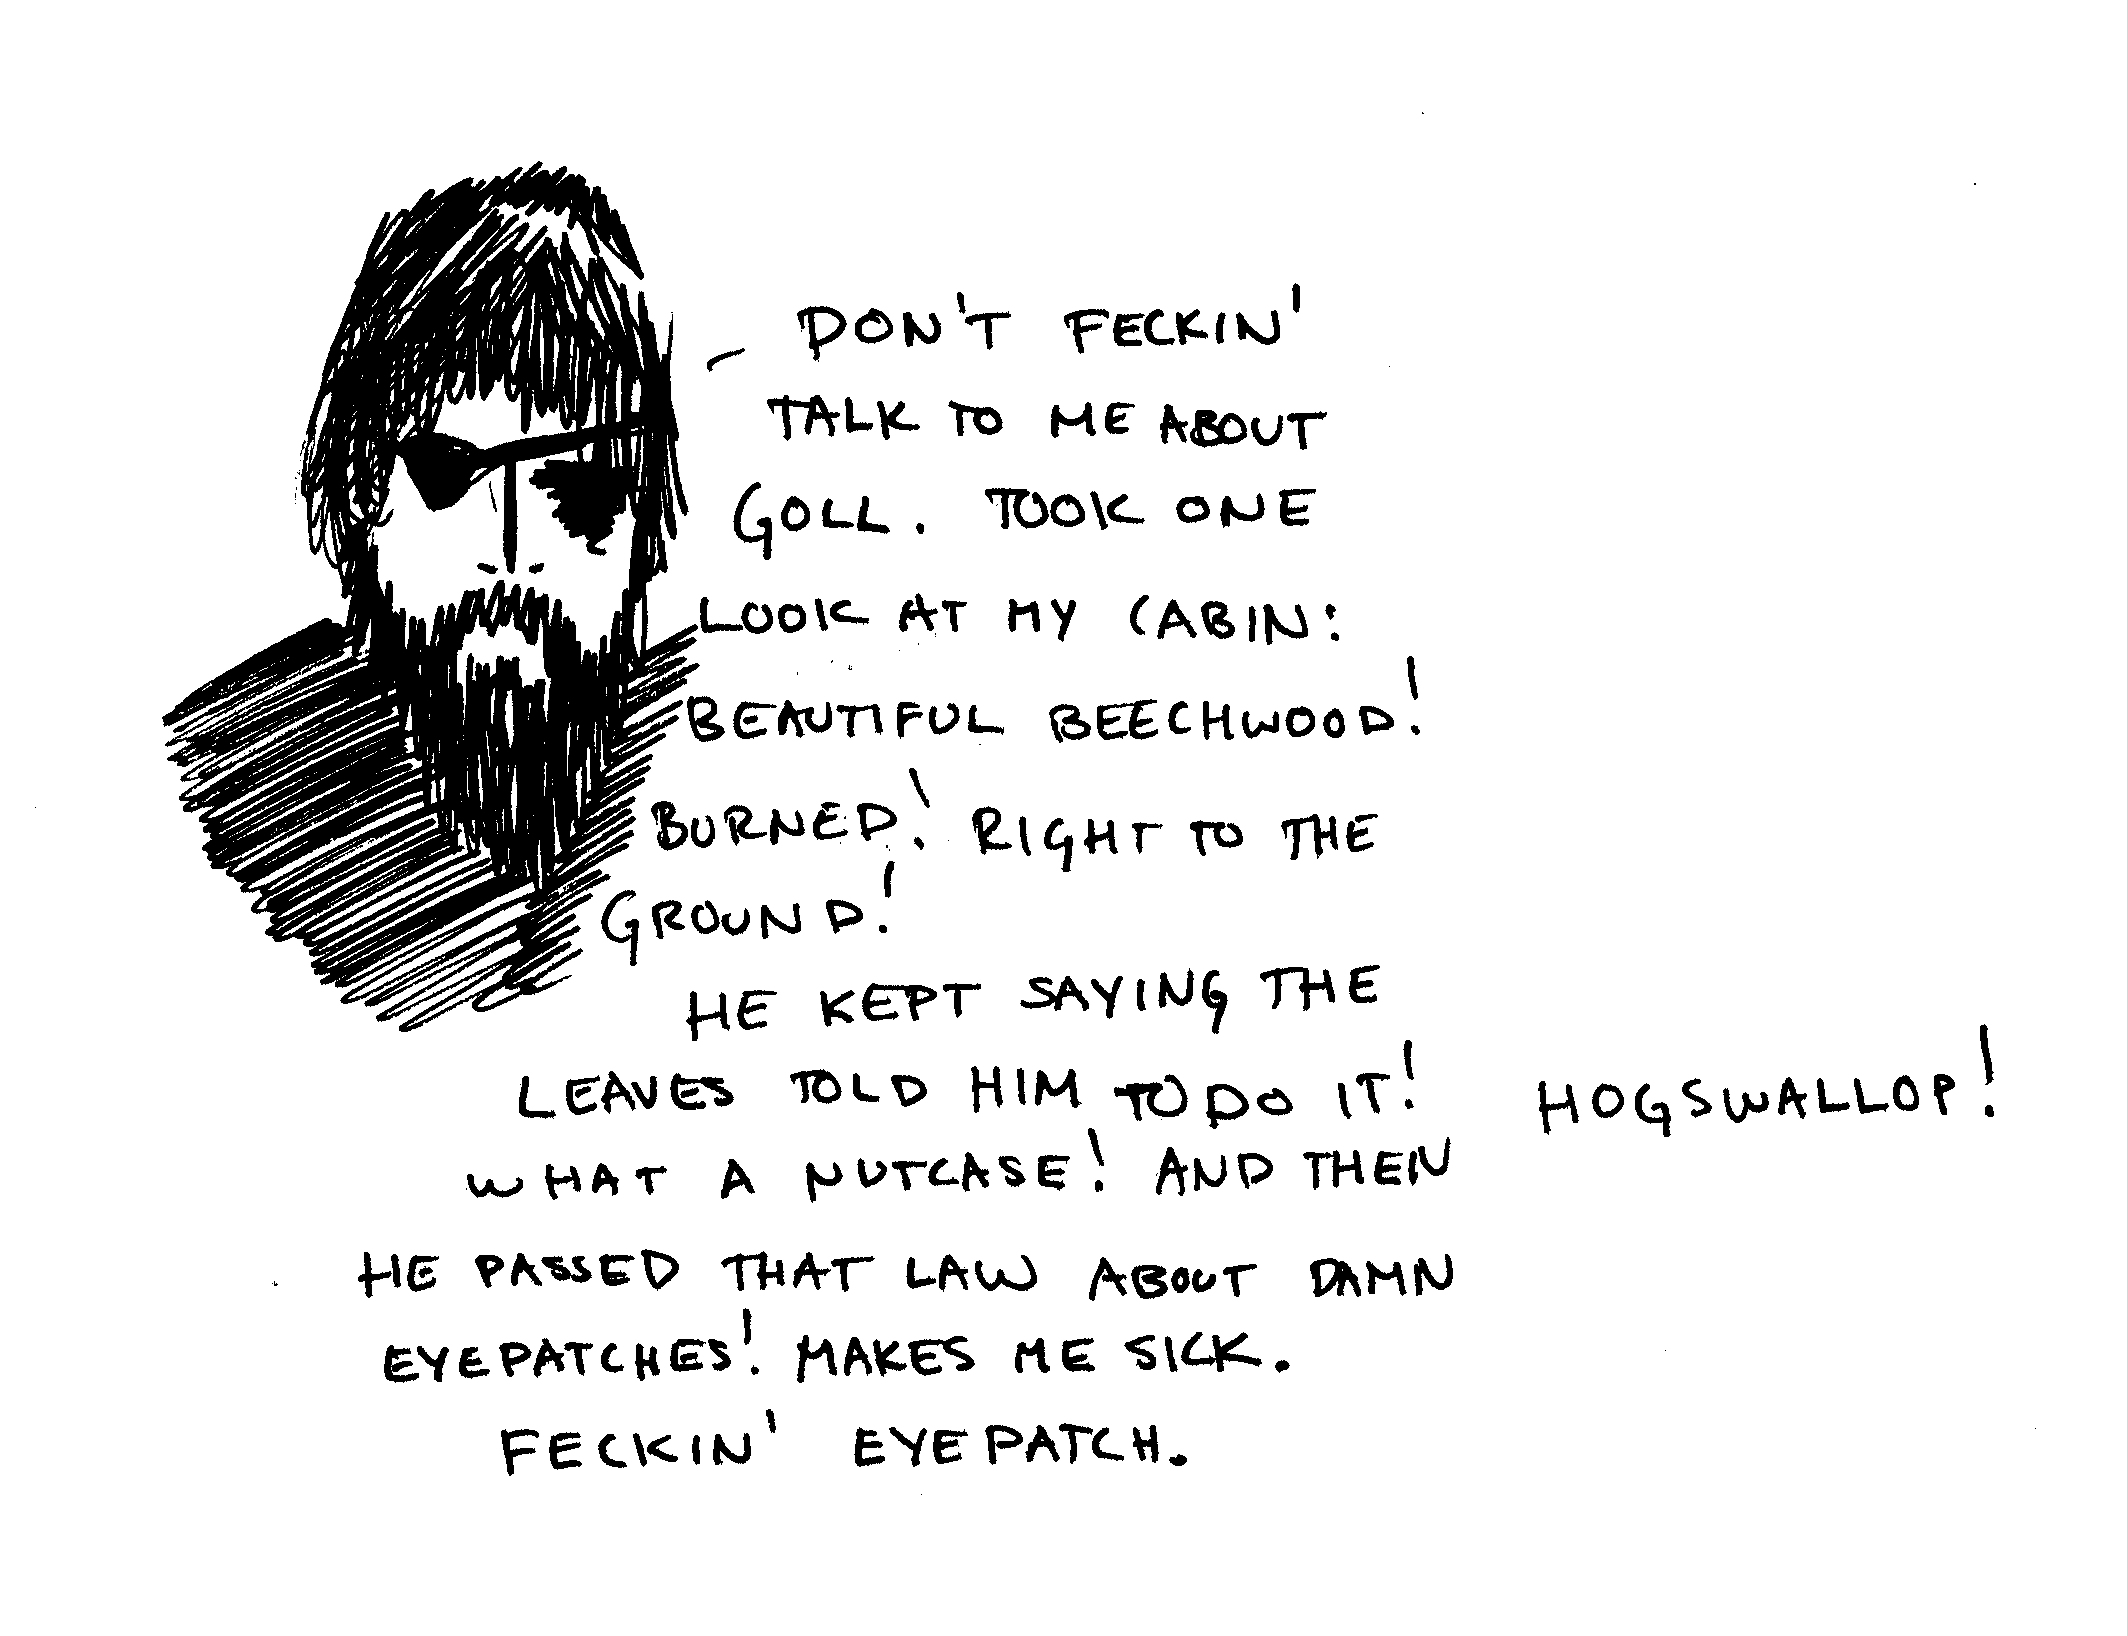 DON'T FECKIN'
TALK TO ME ABOUT
GOLL. TOOK ONE
LOOK AT MY CABIN:
BEAUTIFUL BEECHWOOD!
BURNED! RIGHT TO THE
GROUND!
HE KEPT SAYING THE
LEAVES TOLD HIM TO DO IT! HOGSWALLOP!
WHAT A NUTCASE! AND THEN
HE PASSED THAT LAW ABOUT DAMN
EYEPATCHES! MAKES ME SICK.
FECKIN' EYEPATCH.